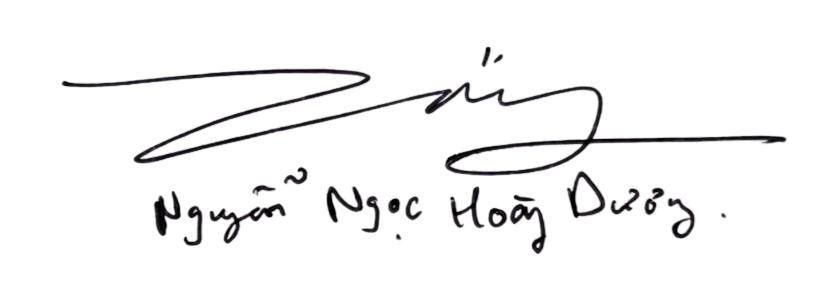 Nguyễn Ngọc Hoàng Dương.